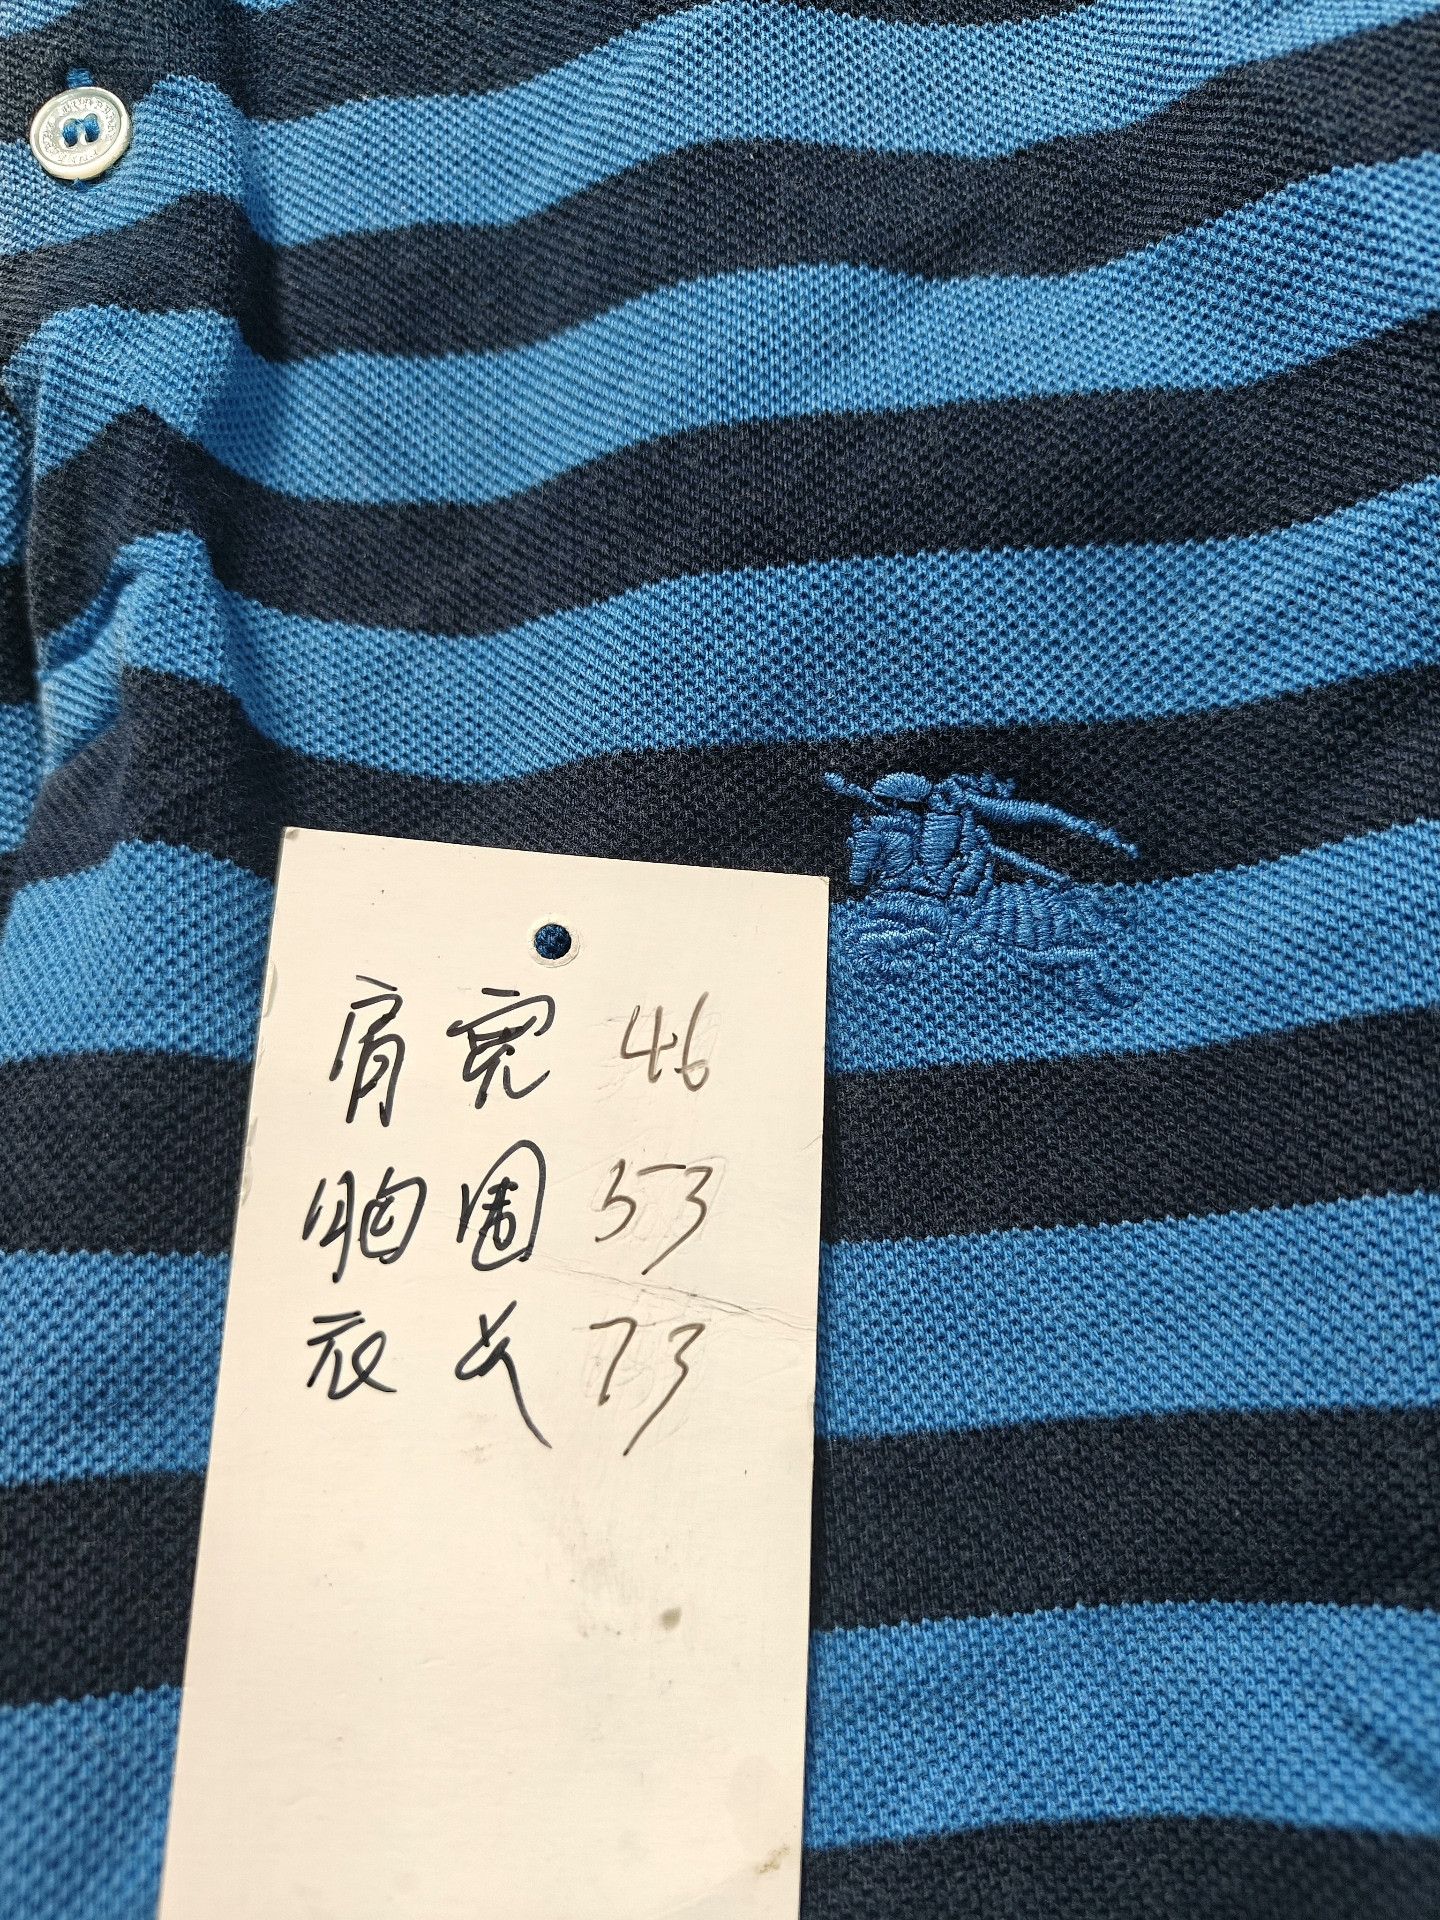 肩宽 46
胸围 53
衣长 73